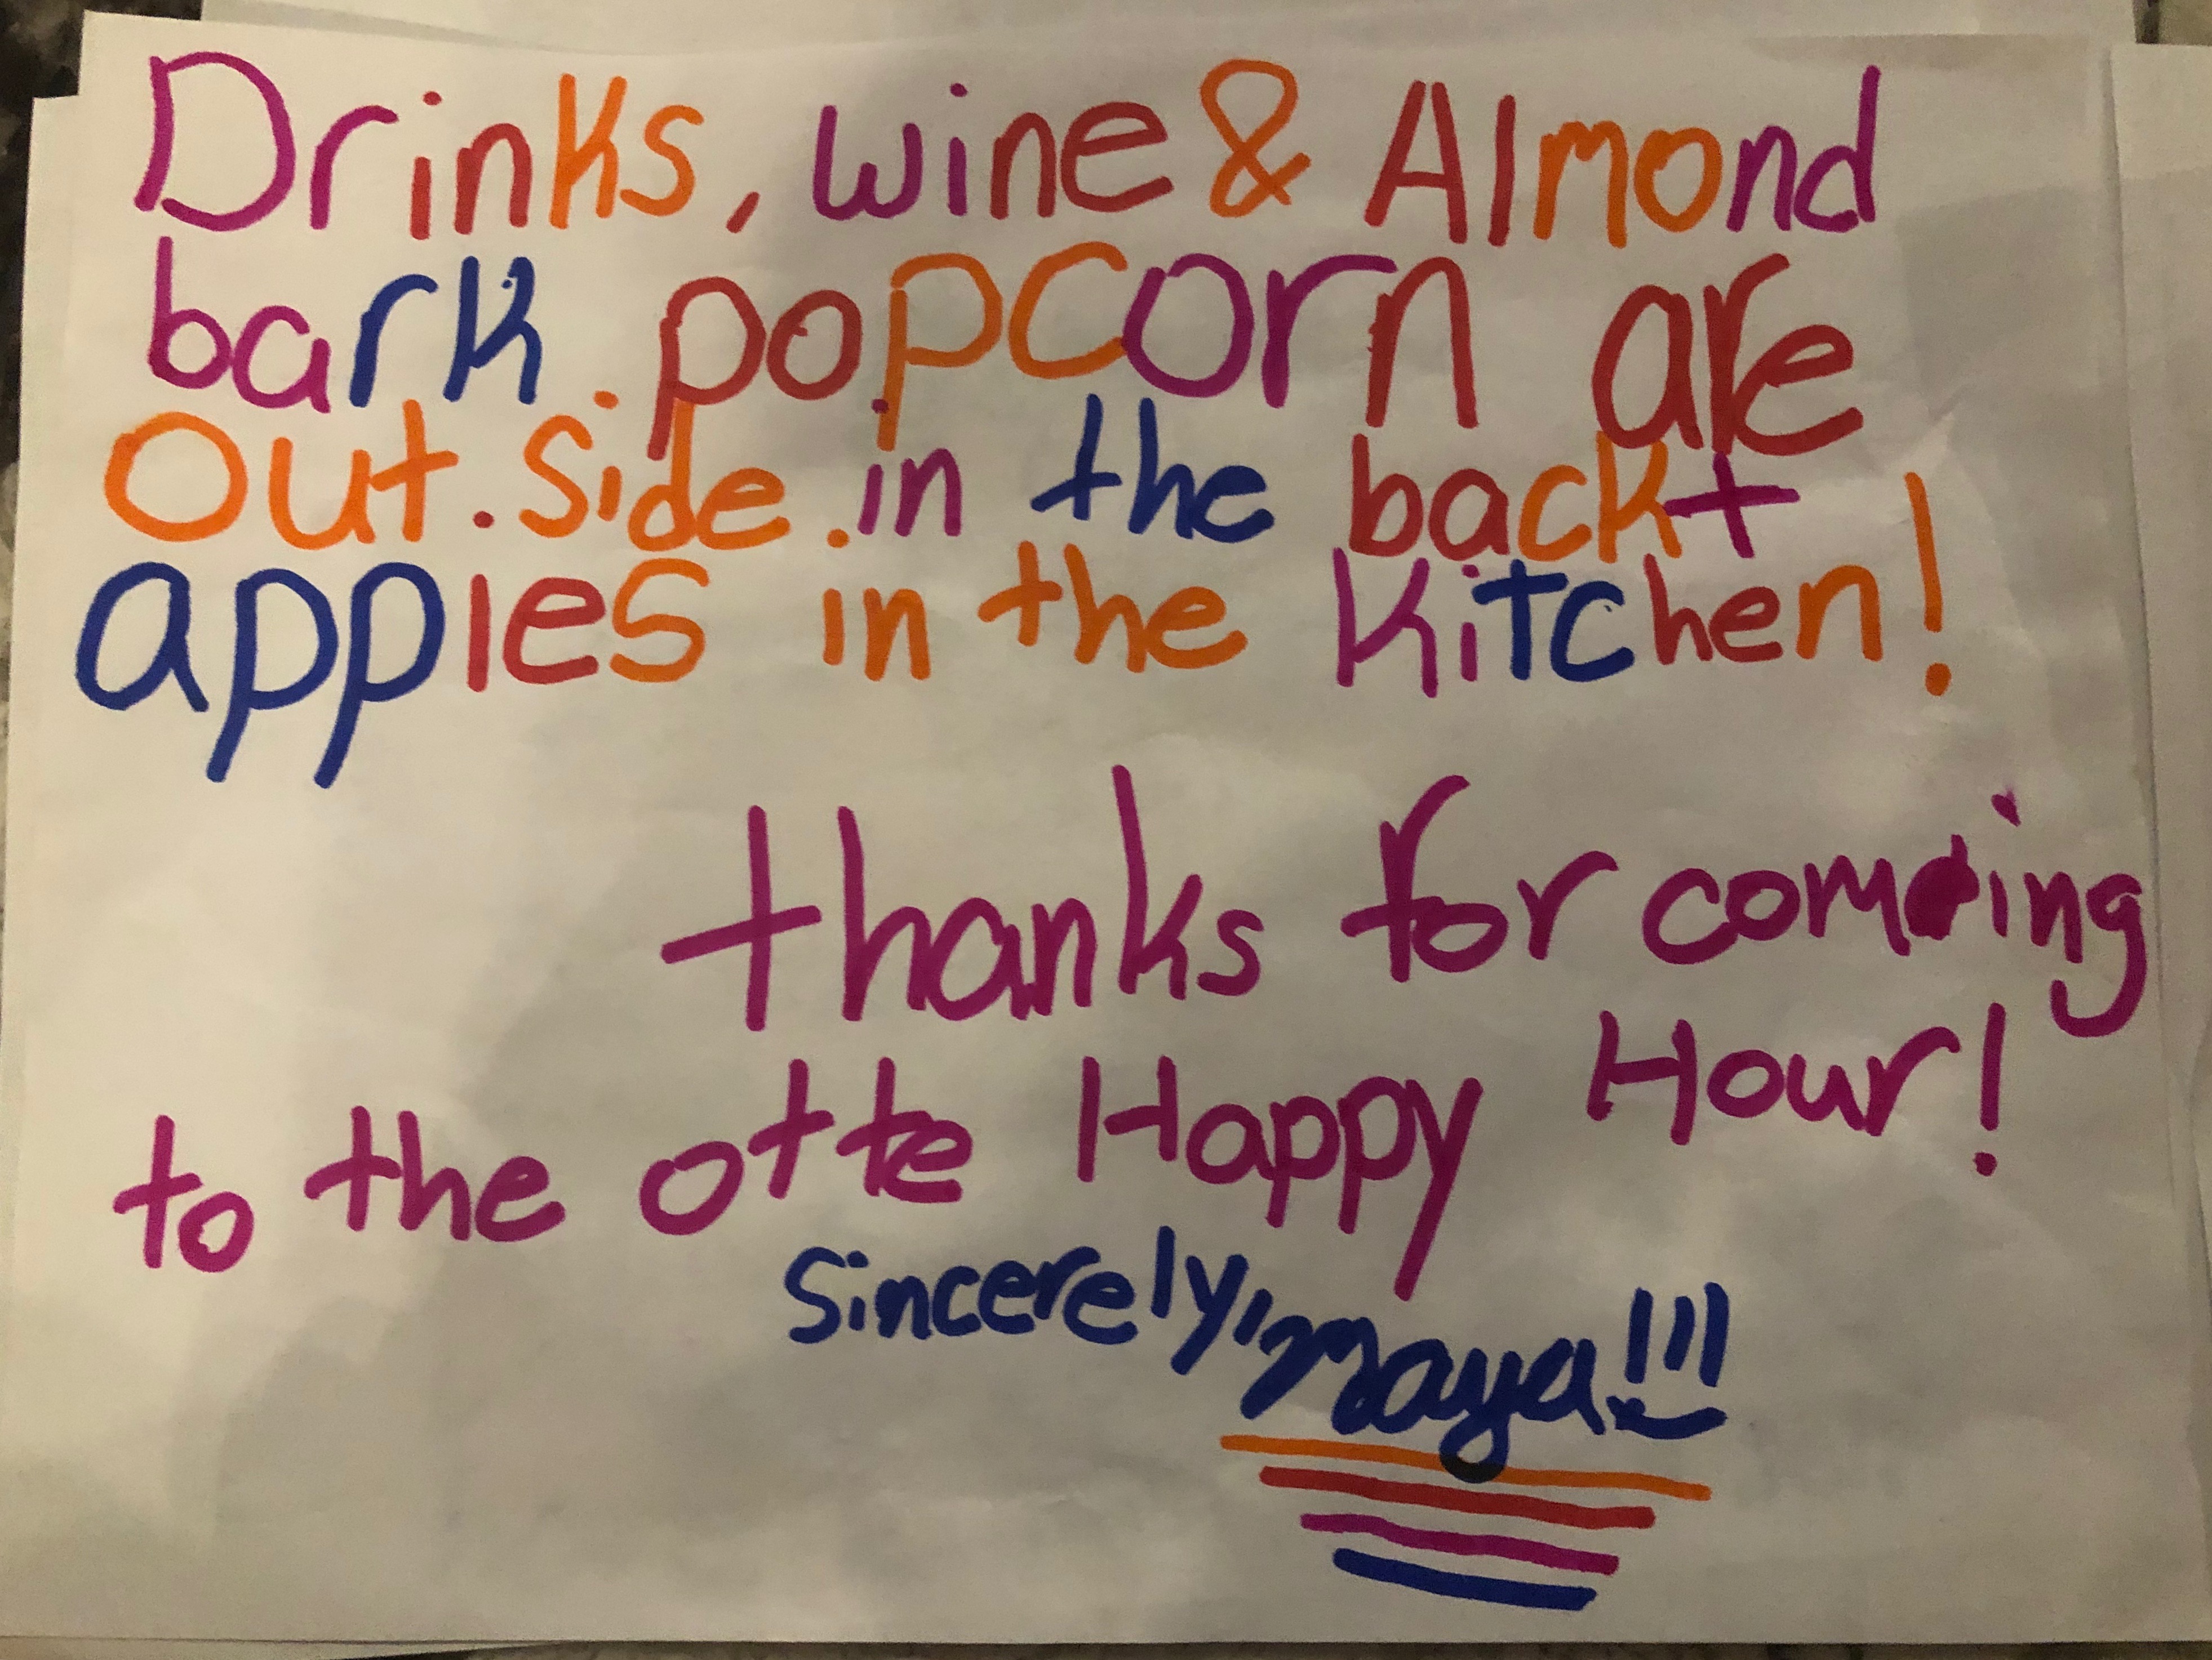 Drinks, wine & Almond
bark popcorn are
out.side.in the back+
appies in the kitchen!
thanks for coming
to the otte Happy Hour!
Sincerely, maya!!!